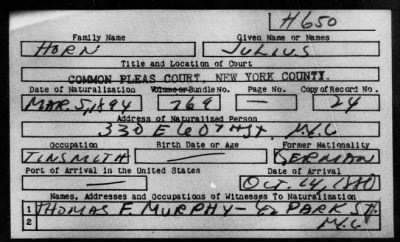 H650
Family Name Given Name or Names
HORN JULIUS
Title and Location of Court
COMMON PLEAS COURT, NEW YORK COUNTY.
Date of Naturalization Volume or Bundle No. Page No. Copy of Record No.
MAR. 5, 1894 769 — 24
Address of Naturalized Person
330 E 60TH ST. N.Y.C
Occupation Birth Date or Age Former Nationality
TINSMITH — GERMAN
Port of Arrival in the United States Date of Arrival
— OCT. 14, 1880
Names, Addresses and Occupations of Witnesses To Naturalization
1 THOMAS F. MURPHY - 42 PARK ST.
2 N.Y.C